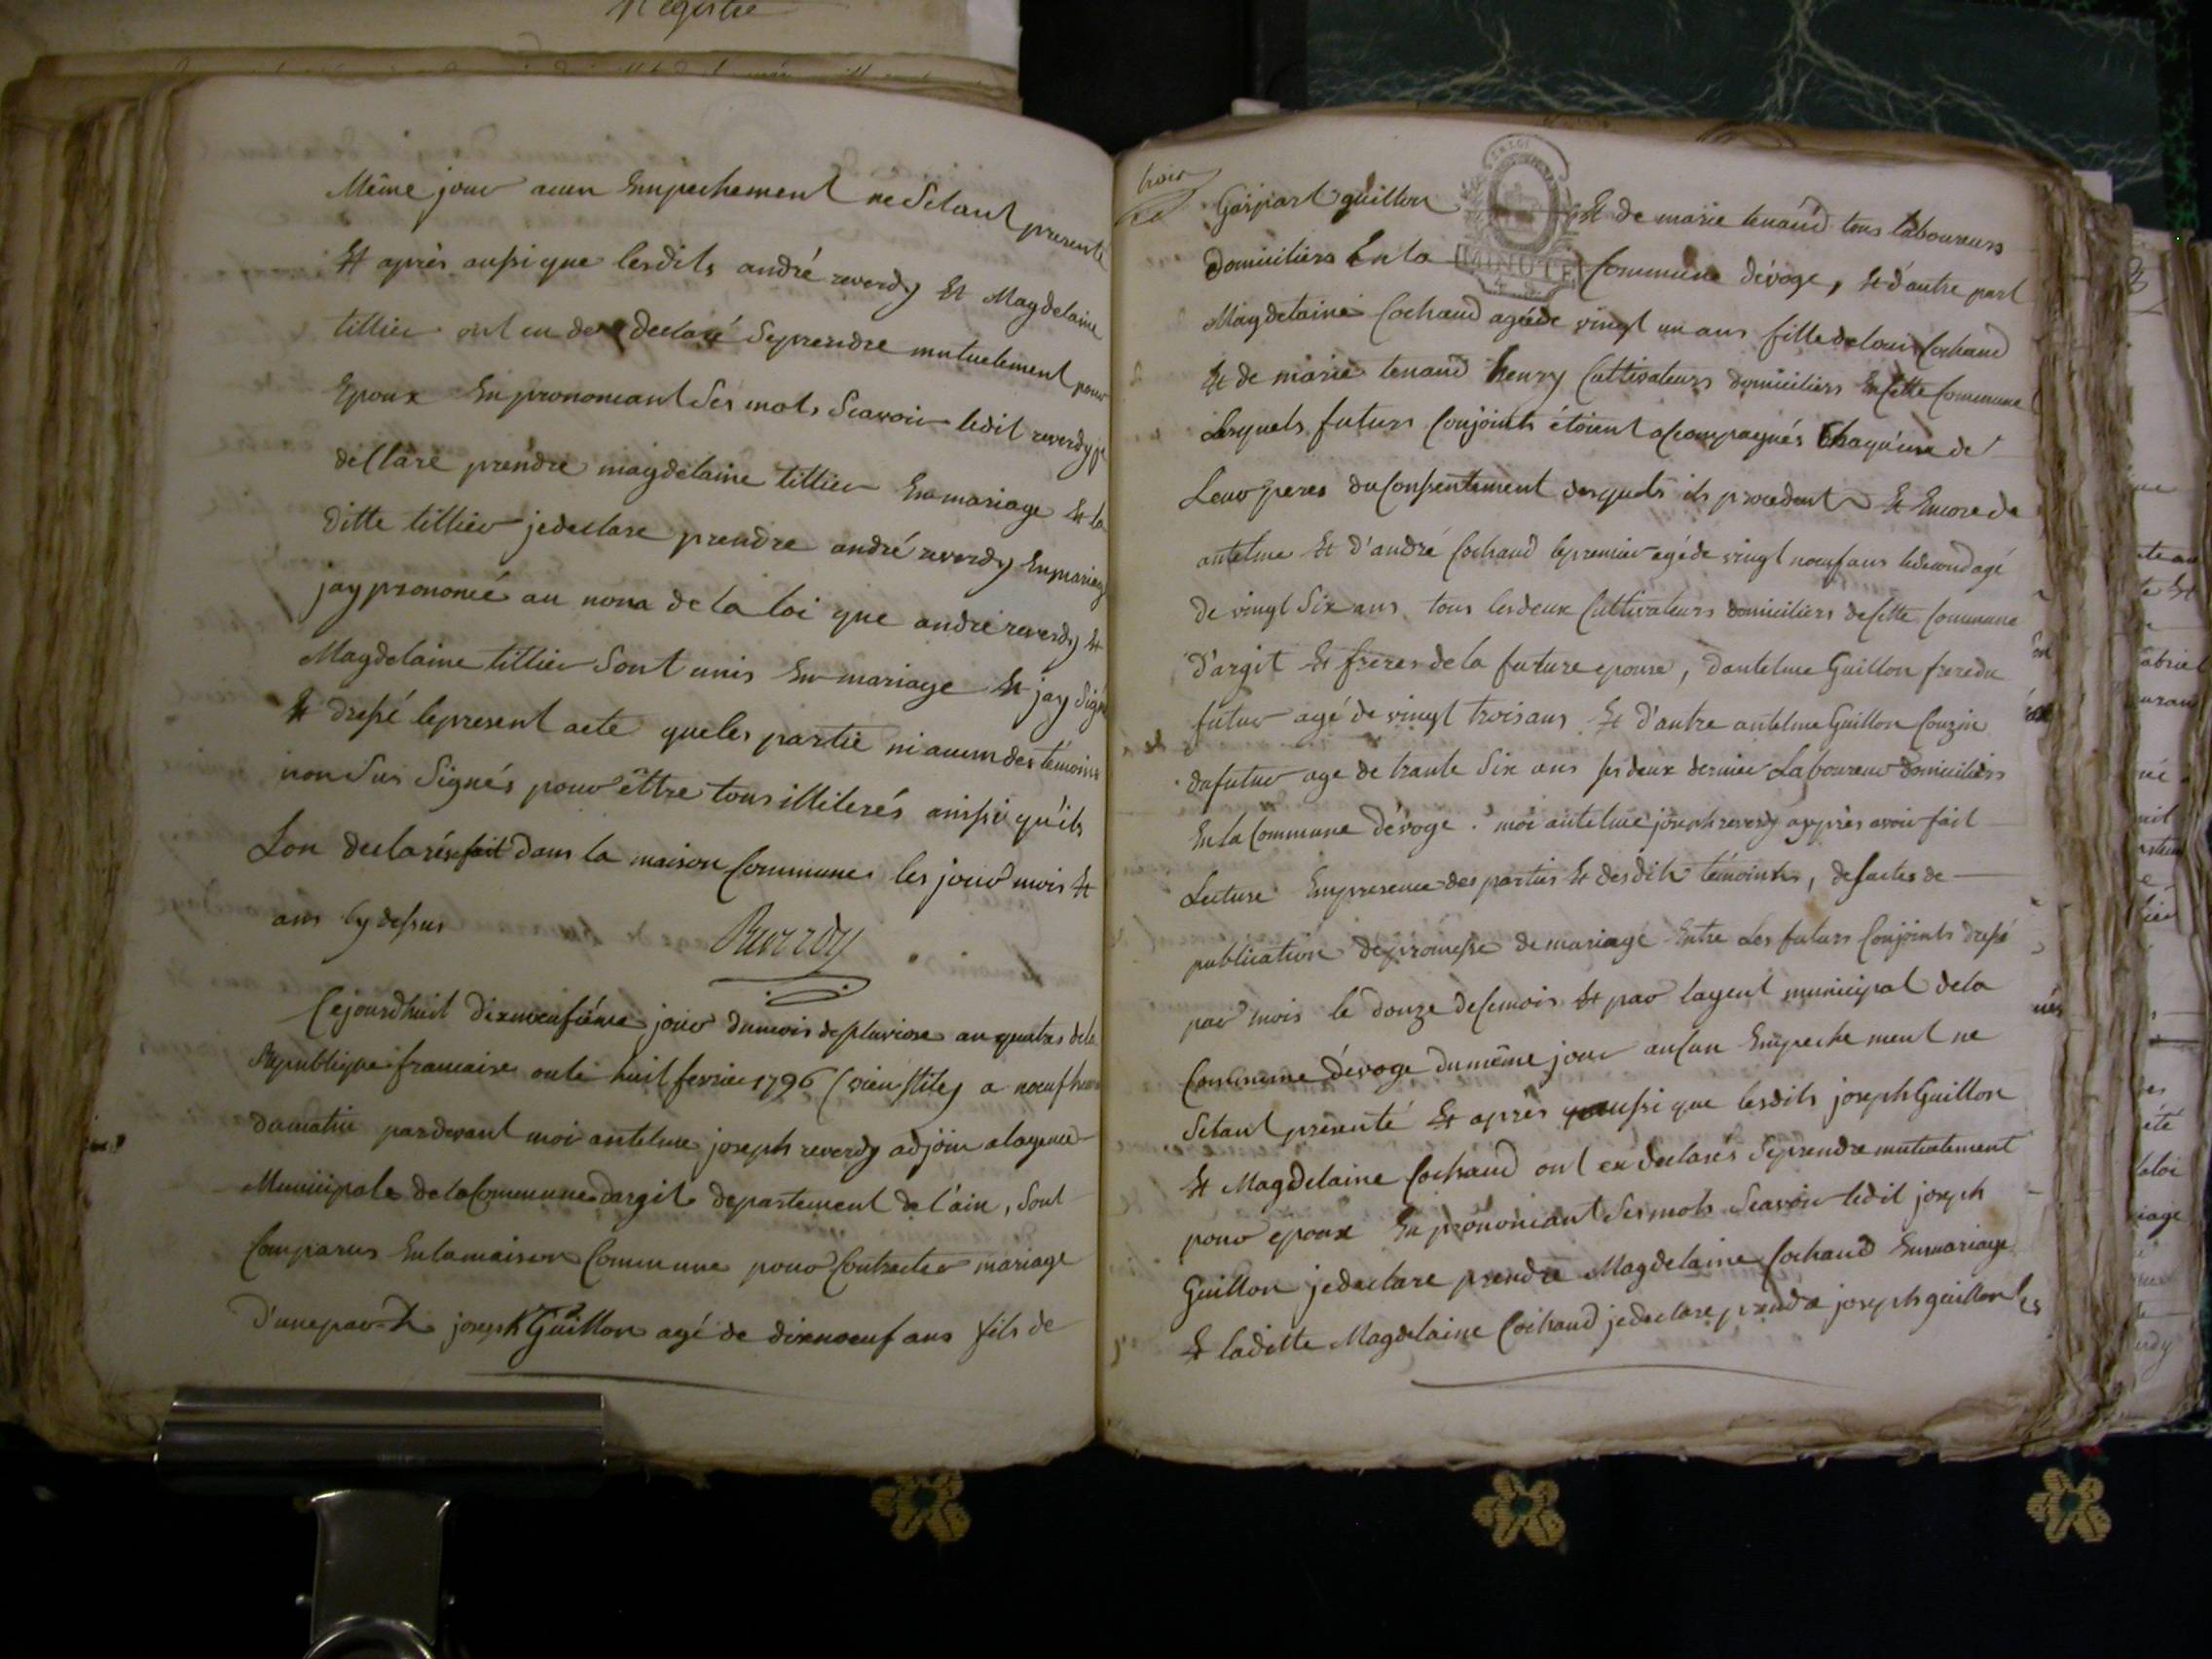 Registre
Même jour aucun Empechement ne Setant presenté
Et après aussi que lesdits andré reverdy Et Magdelaine
tillier ont eu de declaré Seprendre mutuelement pour
Epoux En prononcant Ses mots Scavoir ledit reverdy je
declare prendre magdelaine tillier En mariage Et la
ditte tillier jedeclare prendre andré reverdy En mariage
jay prononcé au nom de la loi que andré reverdy Et
Magdelaine tillier Sont unis En mariage Et jay Signé
Et dressé lepresent acte queles partie ni aucun des témoins
non Sus Signés pour êttre tous illiterés ainssi qu'ils
Lon declarés fait dans la maison Commune les jour mois Et
ans Cy dessus
Reverdy
Cejourdhuit dixneufième jour dumois depluviose an quatres dela
Republique francaise oule huit fevrier 1796 (vieu stile) a noeuf heures
dumatin pardevant moi antelme joseph reverdy adjoin alagence
Municipale delaCommune dargit departement de l'ain, Sont
Comparus Enlamaison Commune pour Contracter mariage
D'unepart joseph Guillon agé de dixnoeuf ans fils de
trois
Gaspart guillon Et de marie tenaud tous laboureurs
Domiciliers En la MINUTE Commune dévoge, Et d'autre part
Magdelaine Cochaud agéede vingt un ans fille delouis Cochaud
Et de marie tenaud henry Cultivateurs domiciliers En Cette Commune
Lesquels futurs Conjoints étoient aCompagnés Chaquune de
Leur peres du Consentement desquels ils procedent Et Encore de
antelme Et d'andré Cochaud lepremier agéde vingt noeuf ans ledecond agé
de vingt Six ans tous lesdeux Cultivateurs domiciliers deCette Commune
D'argit Et freres dela future epouse, dantelme Guillon freredu
futur agé de vingt troisans Et d'autre antelme Guillon Couzin
dufutur age de trante Six ans les deux dernier Laboureur domiciliers
En la Commune dévoge. moi antelme joseph reverdy apprès avoir fait
Lecture Empresence des parties Et desdits témoins, desactes de
publication depromesse de mariage Entre Les futurs Conjoints dressé
par mois le douze deCemois Et par lagent municipal dela
Commune dévoge dumême jour auCun Empeche ment ne
Setant présenté Et après aussi que lesdits joseph Guillon
Et Magdelaine Cochaud ont eu declarés Seprendre mutuelement
pour epoux En prononciant Ses mots Scavoir ledit joseph
Guillon jedeclare prendre Magdelaine Cochaud Enmariage
Et laditte Magdelaine Cochaud jedeclare prendre joseph guillon